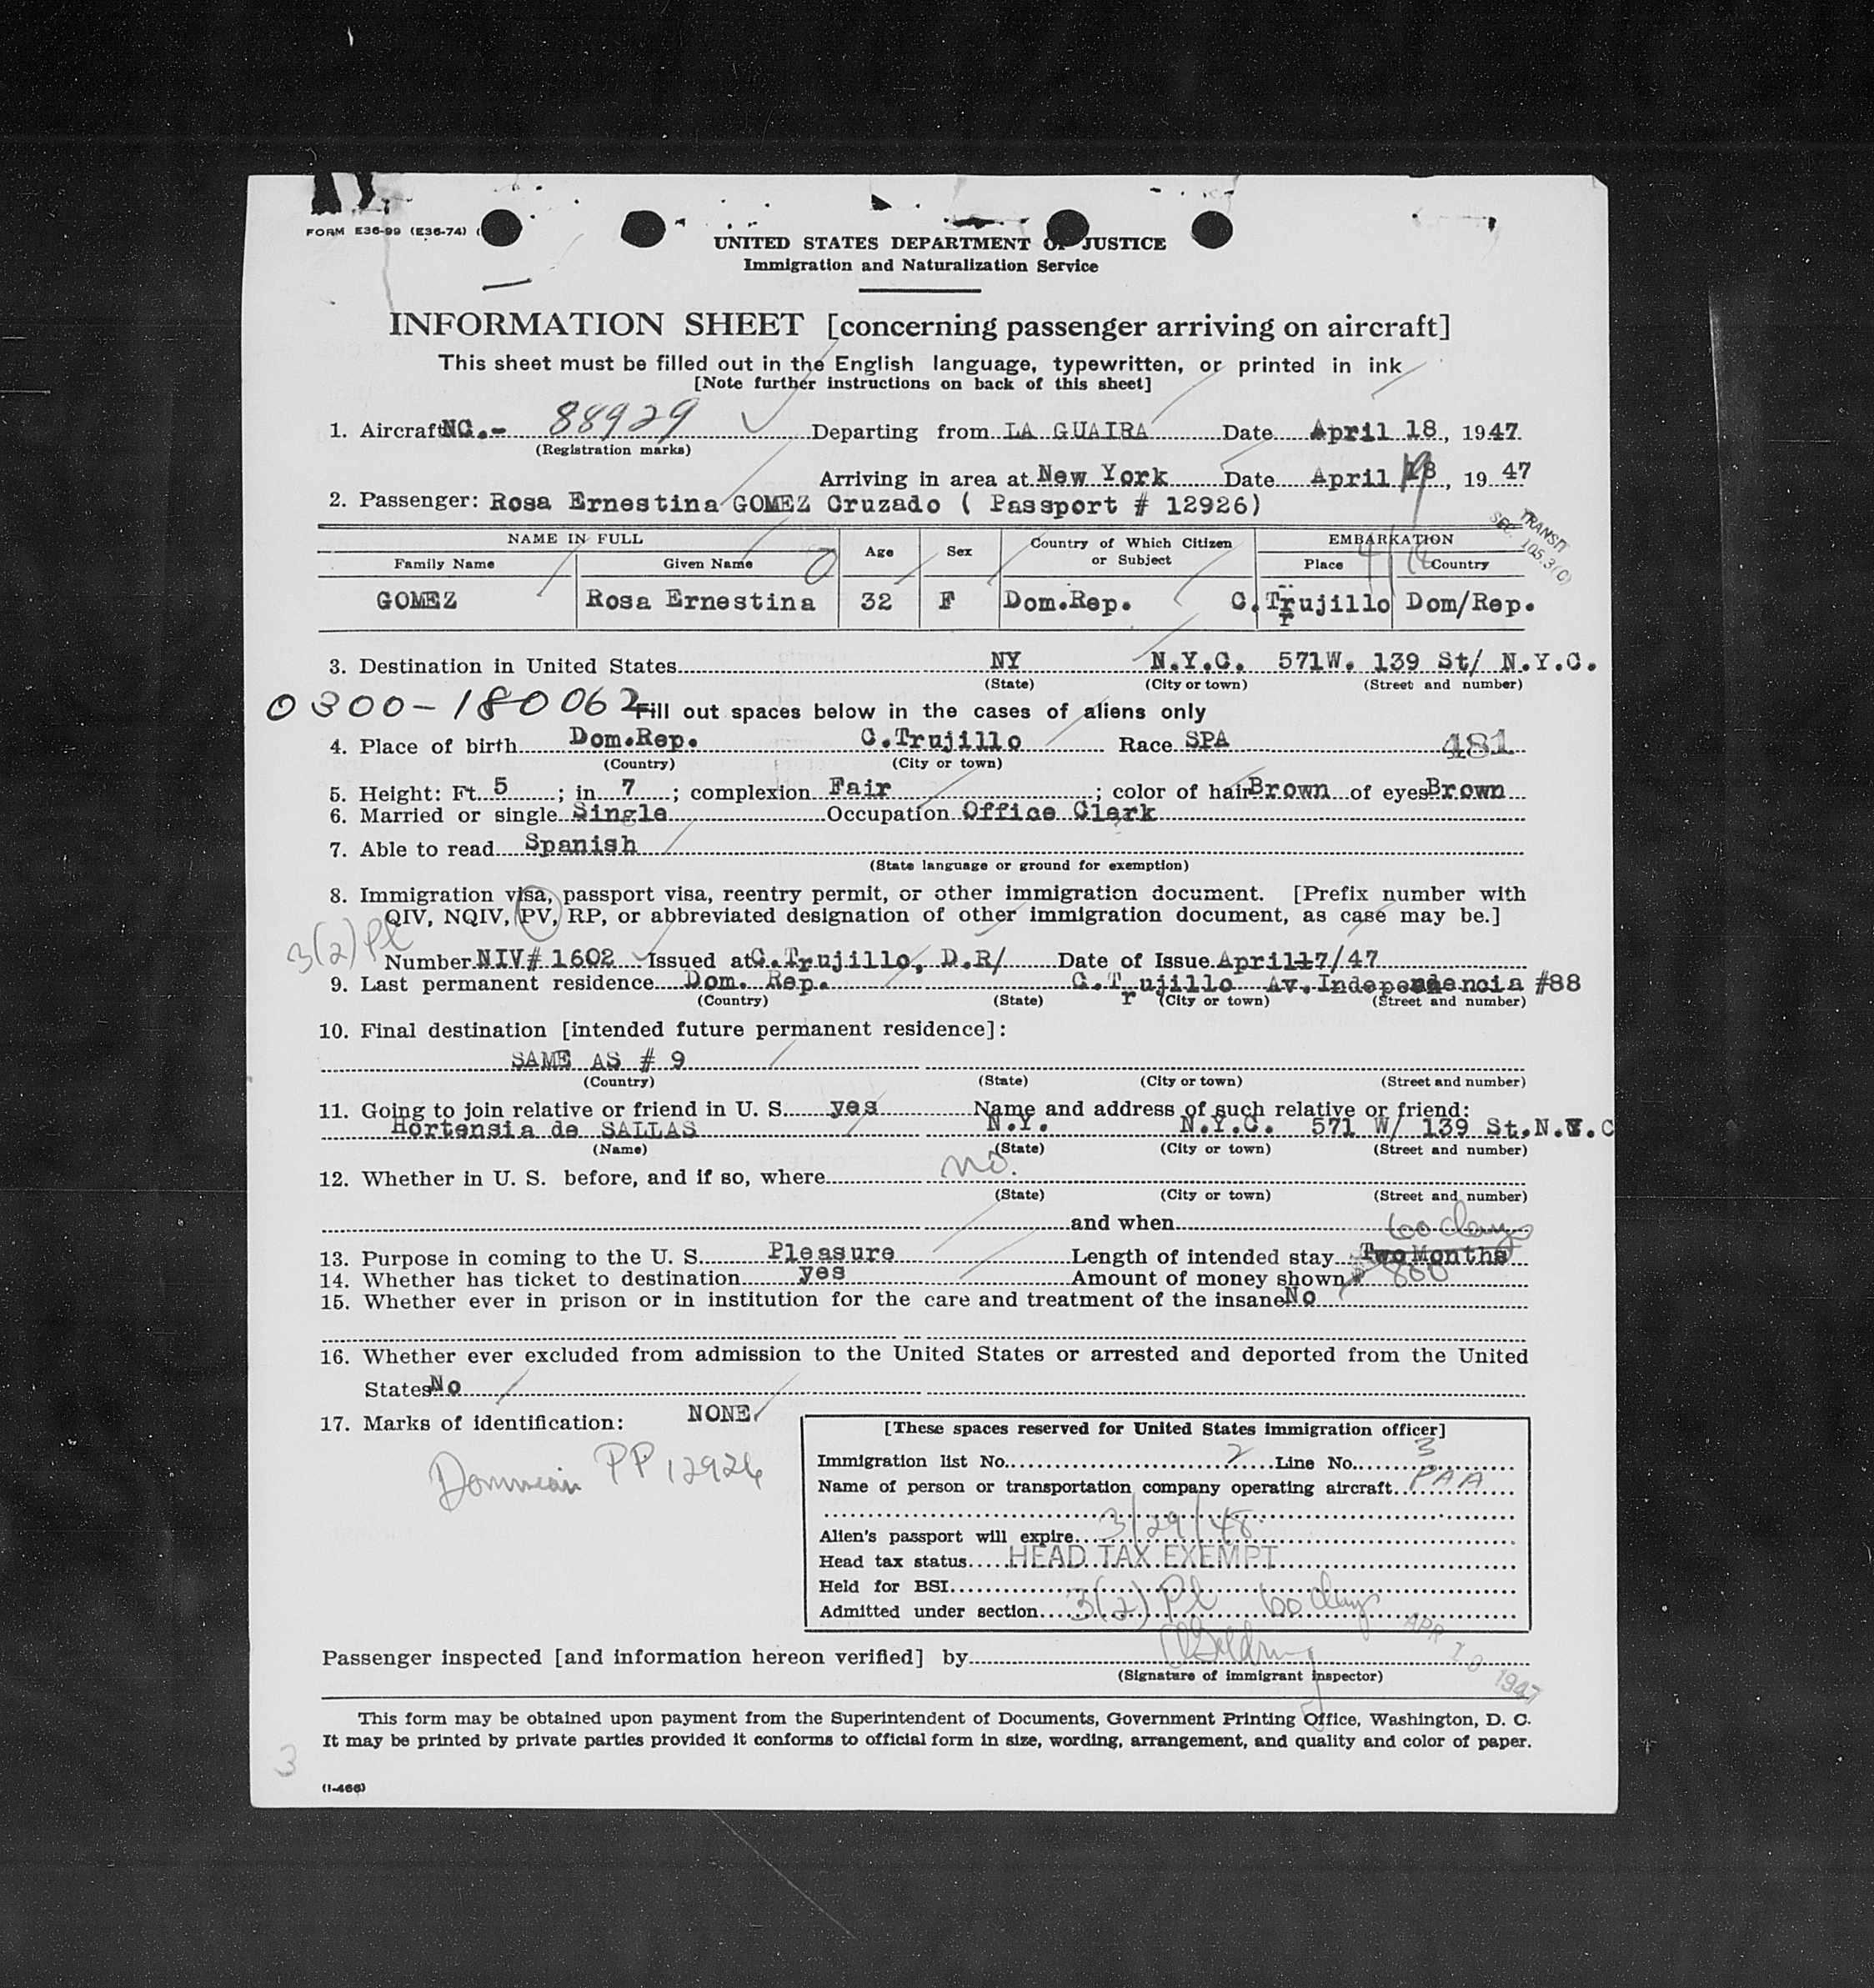 FORM E36-99 (E36-74) (
UNITED STATES DEPARTMENT OF JUSTICE
Immigration and Naturalization Service
INFORMATION SHEET [concerning passenger arriving on aircraft]
This sheet must be filled out in the English language, typewritten, or printed in ink
[Note further instructions on back of this sheet]
1. Aircraft NC.- 88929 Departing from LA GUAIRA Date April 18, 1947.
(Registration marks)
Arriving in area at New York Date April 18, 19 47
2. Passenger: Rosa Ernestina GOMEZ Cruzado ( Passport # 12926)
TRANSIT
SEC. 105.3(C)
NAME IN FULL Age Sex Country of Which Citizen or Subject EMBARKATION
Family Name Given Name Place Country
GOMEZ Rosa Ernestina 32 F Dom.Rep. C.Trujillo Dom/Rep.
3. Destination in United States NY N.Y.C. 571W. 139 St/ N.Y.C.
(State) (City or town) (Street and number)
0300-180062 Fill out spaces below in the cases of aliens only
4. Place of birth Dom.Rep. C.Trujillo Race SPA 481
(Country) (City or town)
5. Height: Ft. 5 ; in 7 ; complexion Fair ; color of hair Brown of eyes Brown
6. Married or single Single Occupation Office Clerk
7. Able to read Spanish
(State language or ground for exemption)
8. Immigration visa, passport visa, reentry permit, or other immigration document. [Prefix number with
QIV, NQIV, PV, RP, or abbreviated designation of other immigration document, as case may be.]
3(2) Pl
Number NIV# 1602 Issued at C.Trujillo, D.R/ Date of Issue April 17/47
9. Last permanent residence Dom. Rep. C.Trujillo Av.Independencia #88
(Country) (State) (City or town) (Street and number)
10. Final destination [intended future permanent residence]:
SAME AS # 9
(Country) (State) (City or town) (Street and number)
11. Going to join relative or friend in U. S. yes Name and address of such relative or friend:
Hortensia de SALLAS N.Y. N.Y.C. 571 W/ 139 St.N.Y.C
(Name) (State) (City or town) (Street and number)
12. Whether in U. S. before, and if so, where no.
(State) (City or town) (Street and number)
and when
60 days
13. Purpose in coming to the U. S. Pleasure Length of intended stay Two Months
14. Whether has ticket to destination yes Amount of money shown 800
15. Whether ever in prison or in institution for the care and treatment of the insane No
16. Whether ever excluded from admission to the United States or arrested and deported from the United
States No
17. Marks of identification: NONE
Dominican PP 12926
[These spaces reserved for United States immigration officer]
Immigration list No. 2 Line No. 3
Name of person or transportation company operating aircraft PAA
Alien's passport will expire 3/29/48
Head tax status HEAD TAX EXEMPT
Held for BSI
Admitted under section 3(2) Pl 60 days
APR 10 1947
Passenger inspected [and information hereon verified] by
(Signature of immigrant inspector)
This form may be obtained upon payment from the Superintendent of Documents, Government Printing Office, Washington, D. C.
It may be printed by private parties provided it conforms to official form in size, wording, arrangement, and quality and color of paper.
3
(I-466)